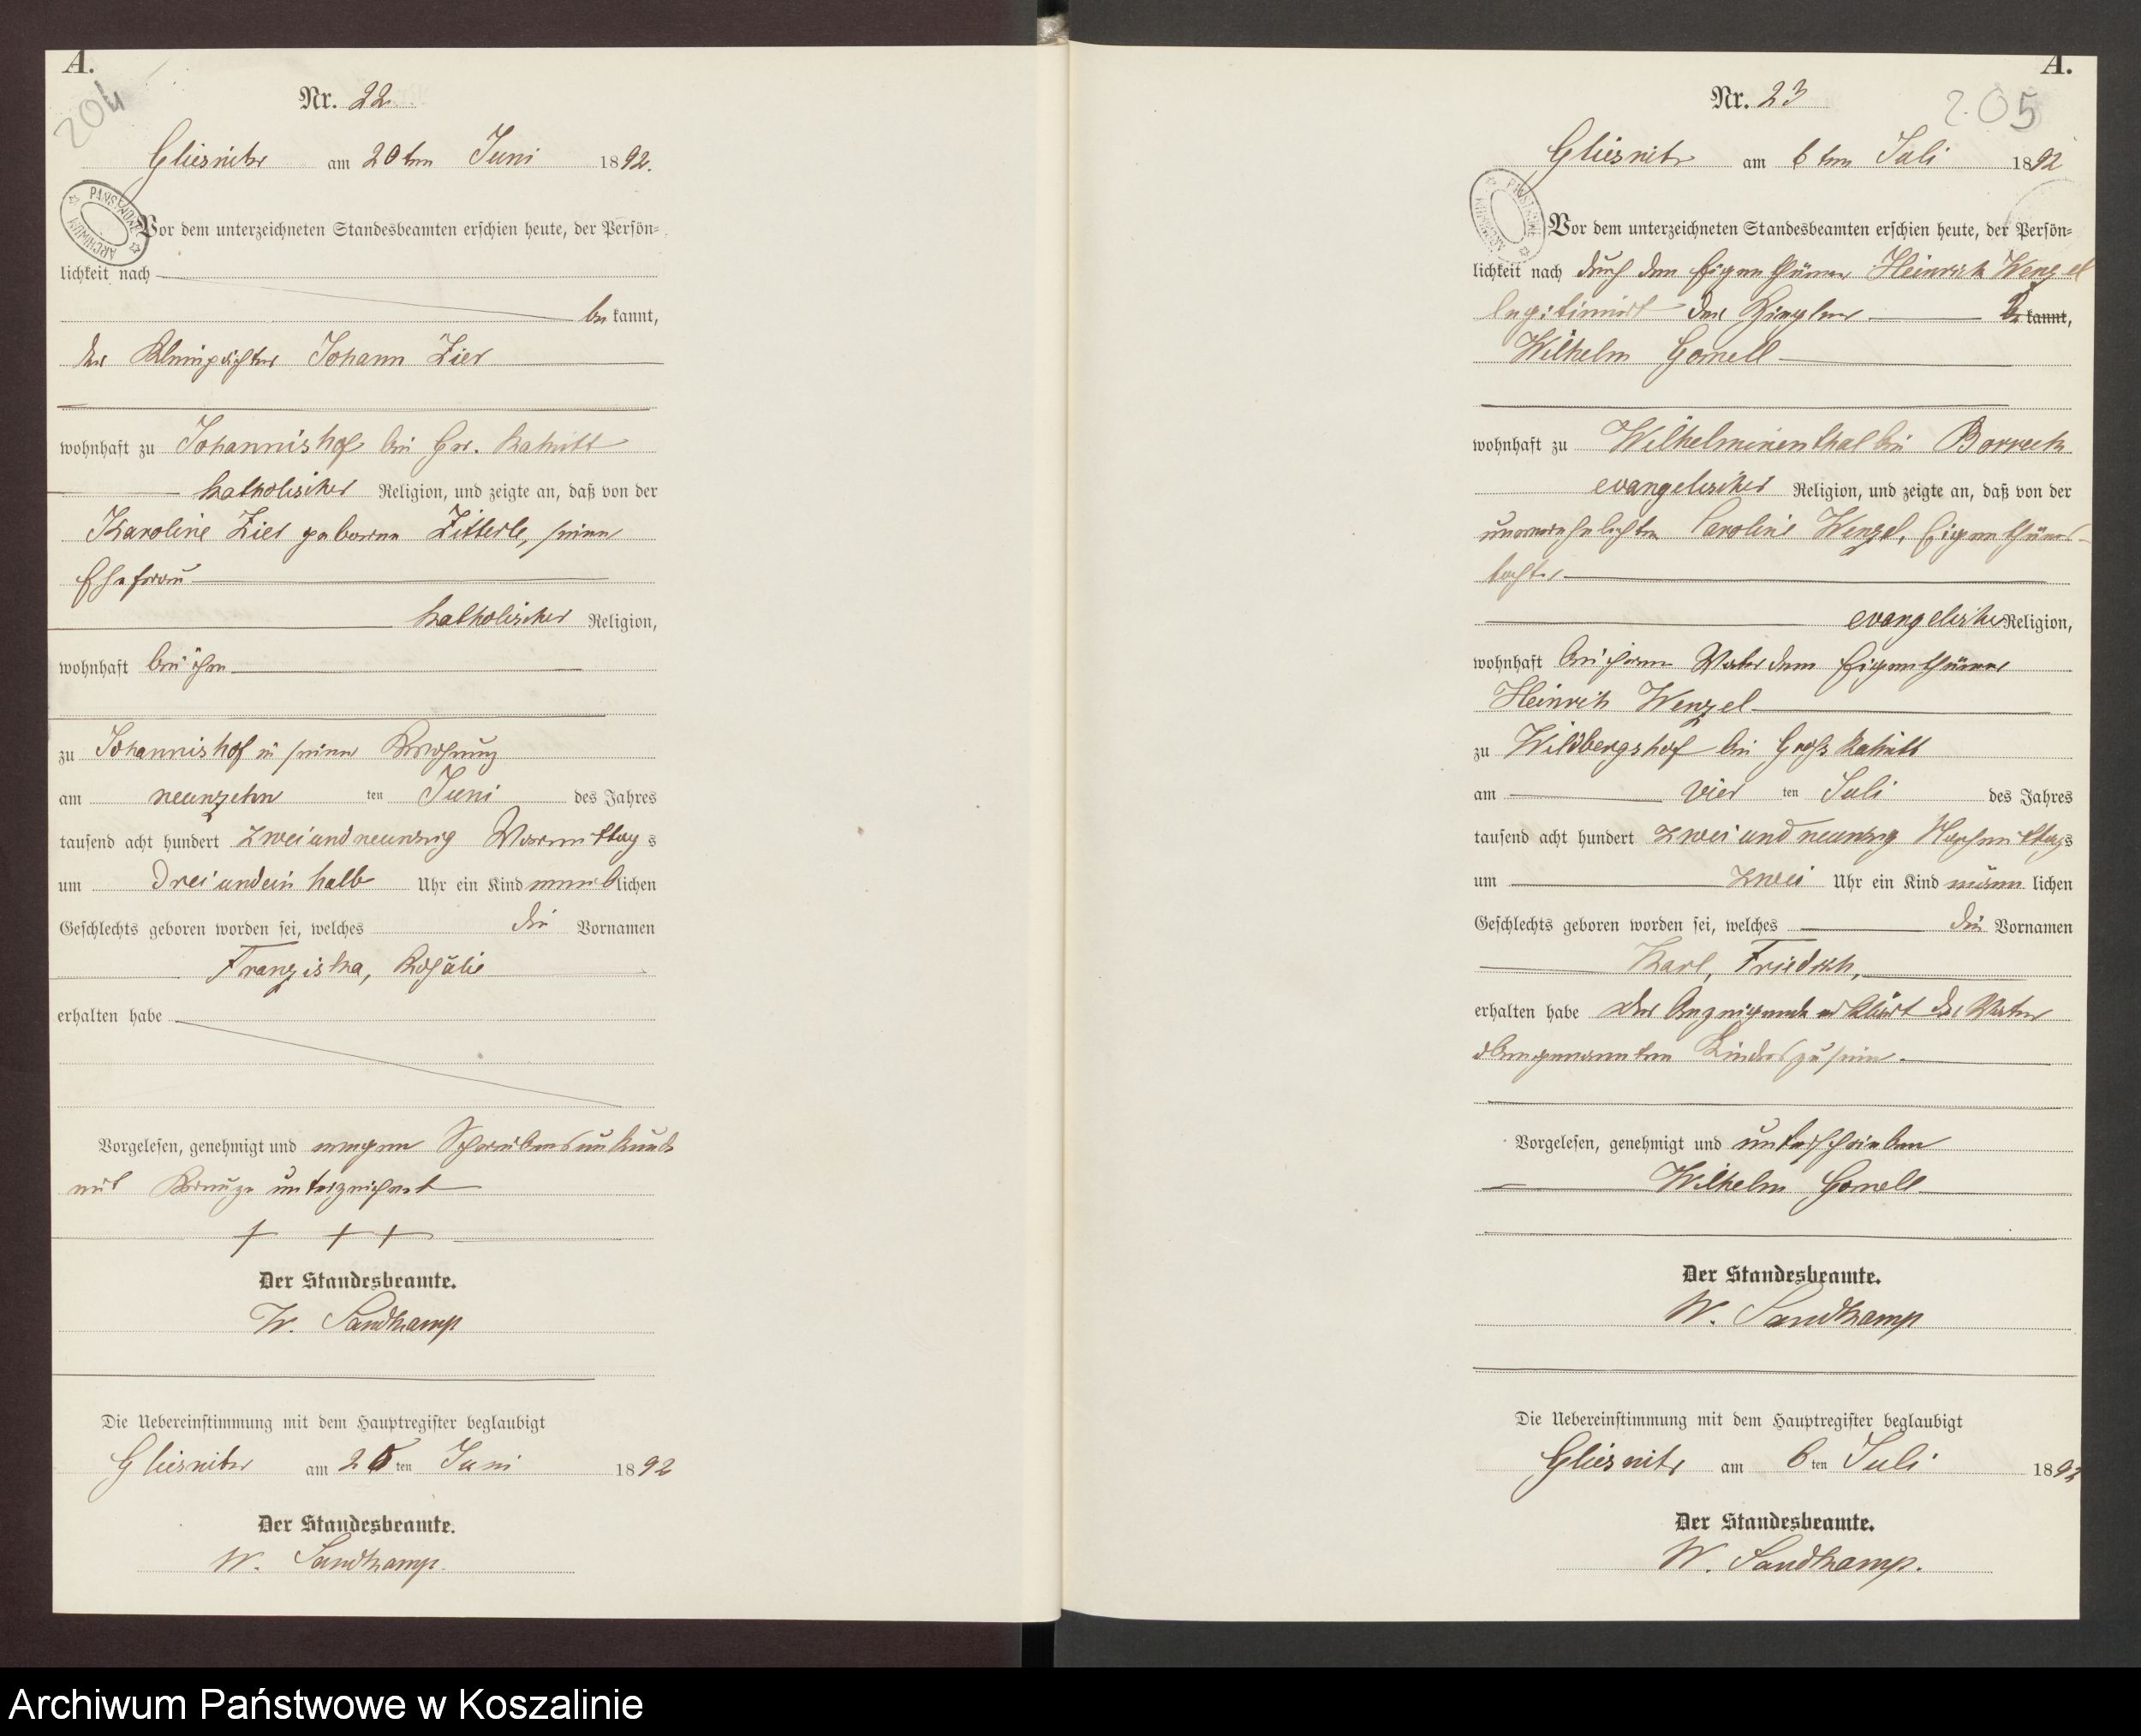 A.
204
Nr. 22
Gliesnitz am 20ten Juni 1892.
PAŃSTWOWE ARCHIWUM
Vor dem unterzeichneten Standesbeamten erschien heute, der Persön-
lichkeit nach
bekannt,
der Johann Zier
wohnhaft zu Johannishof bei Gr. Katritt
katholischer Religion, und zeigte an, daß von der
Karoline Zier geborene Zitterle, seiner
Ehefrau
katholischer Religion,
wohnhaft bei ihm
zu Johannishof in seiner Wohnung
am neunzehn ten Juni des Jahres
tausend acht hundert zweiundneunzig Vormittags
um drei undein halb Uhr ein Kind weiblichen
Geschlechts geboren worden sei, welches die Vornamen
Franziska, Rosalie
erhalten habe
Vorgelesen, genehmigt und wegen Schreibensunkunde
mit Kreuze unterzeichnet
+ + +
Der Standesbeamte.
W. Sandkamp
Die Uebereinstimmung mit dem Hauptregister beglaubigt
Gliesnitz am 20ten Juni 1892
Der Standesbeamte.
W. Sandkamp.
A.
205
Nr. 23
Gliesnitz am 6ten Juli 1892
PAŃSTWOWE ARCHIWUM
Vor dem unterzeichneten Standesbeamten erschien heute, der Persön-
lichkeit nach durch den Eigenthümer Heinrich Wenzel
legitimirt der Ziegler bekannt,
Wilhelm Gomell
wohnhaft zu Wilhelminenthal bei Borreck
evangelischer Religion, und zeigte an, daß von der
unverehelichten Caroline Wenzel, Eigenthümer-
tochter
evangelischer Religion,
wohnhaft bei ihrem Vater dem Eigenthümer
Heinrich Wenzel
zu Wildbergshof bei Groß Katritt
am vier ten Juli des Jahres
tausend acht hundert zwei und neunzig Nachmittags
um zwei Uhr ein Kind männlichen
Geschlechts geboren worden sei, welches die Vornamen
Karl, Friedrich,
erhalten habe der Anzeigende erklärt der Vater
obengenannten Kindes zu sein.
Vorgelesen, genehmigt und unterschrieben
Wilhelm Gomell
Der Standesbeamte.
W. Sandkamp
Die Uebereinstimmung mit dem Hauptregister beglaubigt
Gliesnitz am 6ten Juli 1892
Der Standesbeamte.
W. Sandkamp.
Archiwum Państwowe w Koszalinie